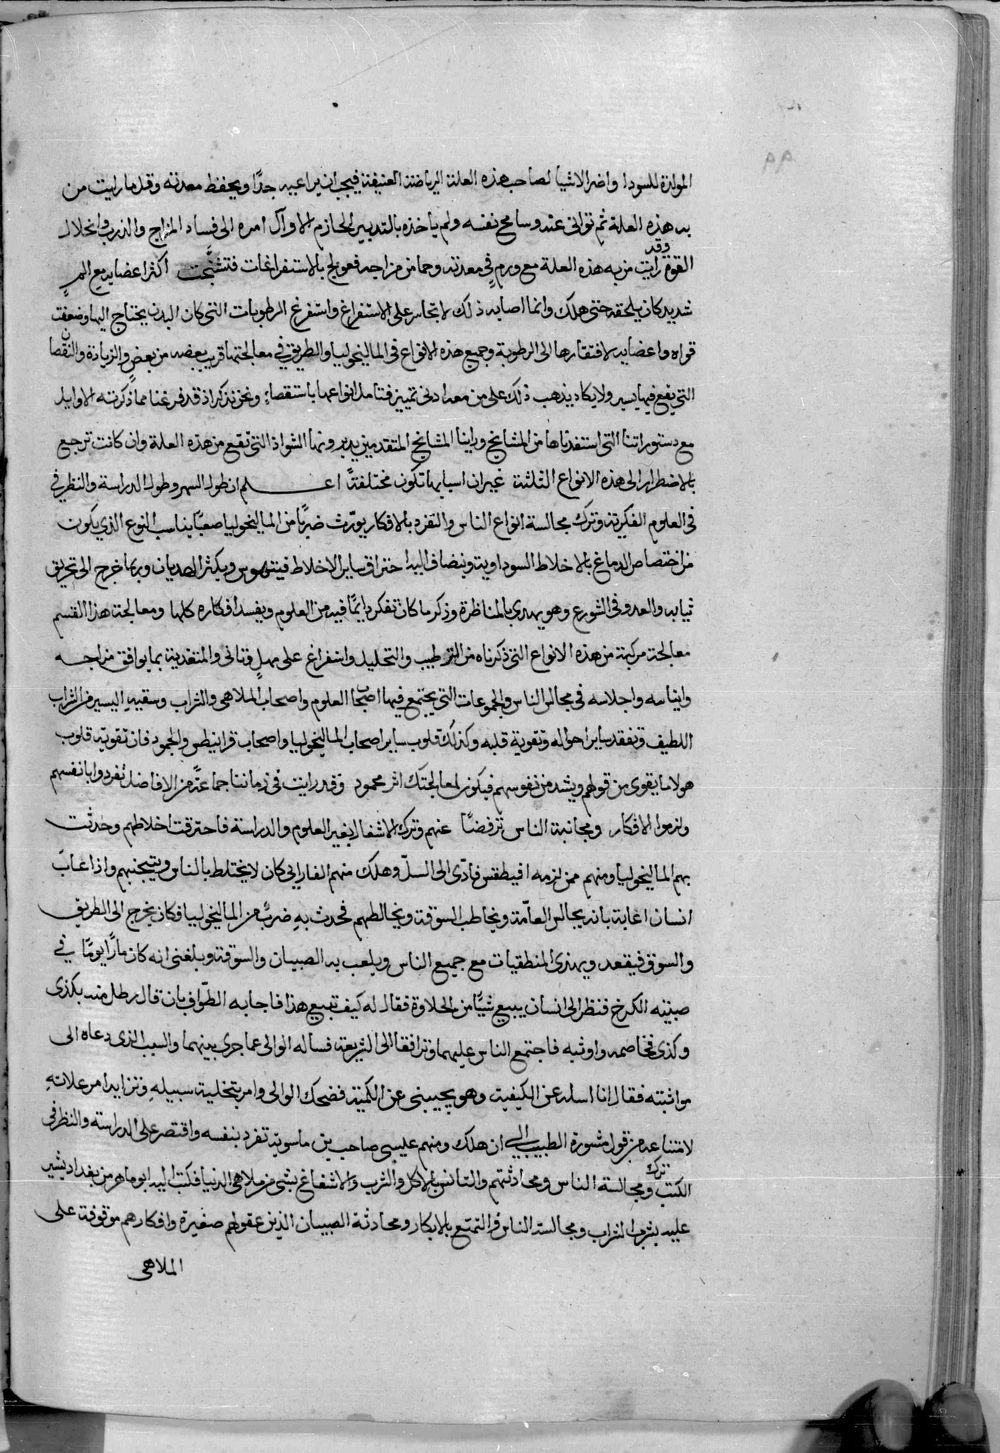 ٩٩
المولدة للسودا واضر الاشيا لصاحب هذه العلة الرياضة العنيفة فيجب ان يراعيه جدًّا ويحفظ معدته وقل ما رايت من
به هذه العلة ثم توانى عنه وسامح نفسه ولم ياخذه بالتدبير الحازم الا وآل امره الى فساد المزاج والذرب وانحلال
القوة وقد رايت من به هذه العلة مع ورم في معدته وحما من مزاجه فعولج بالاستفراغات فتشنَّجت اكثر اعضايه مع الم
شديد كان يلحقه حتى هلك وانما اصابه ذلك لانحامله على الاستفراغ واستفرغ الرطوبات التي كان البدن يحتاج اليها وضعفت
قواه واعضايه لافتقارها الى الرطوبة وجميع هذه الانواع في الماليخوليا والطريق في معالجتها قريب بعضه من بعض والزيادة والنقصان
التي يقع فيها يسير ولا يكاد يذهب ذلك على من معه ادنى تمييز فتامل انواعها باستقصاء ونحن نذكر اذ قد فرغنا مما ذكرته الاوايل
مع دستوراتنا التي استفدناها من المشايخ وراينا المشايخ المتقدمين يدبرونها الشواذ التي تقع من هذه العلة وان كانت ترجع
بالاضطرار الى هذه الانواع الثلثة غير ان اسبابها تكون مختلفة اعلم ان طول السهر وطول الدراسة والنظر في
في العلوم الفكرية وترك مجالسة انواع الناس والتفرد بالافكار يورث ضربًا من الماليخوليا صعبًا يناسب النوع الذي يكون
من اختصاص الدماغ بالاخلاط السوداوية وينضاف اليه احتراق ساير الاخلاط فيتهوس ويكثر الهذيان وربما خرج الى تخريق
ثيابه والعدو في الشورع وهو يهذي بالمناظرة وذكر ما كان تفكر دايمًا فيه من العلوم ويفسد افكاره كلها ومعالجة هذا القسم
معالجة مركبة من هذه الانواع التي ذكرناه من الترطيب والتحليل واستفراغ على مهل وتانى والمتغدية بما يوافق مزاجه
وايناسه واجلاسه في مجالس الناس والجموعات التي يجتمع فيها اصحاب العلوم واصحاب الملاهى والشراب وسقيه اليسير من الشراب
اللطيف وتفقد ساير احواله وتقوية قلبه وكذلك قلوب ساير اصحاب الماليخوليا واصحاب قرانيطس والجمود فان تقوية قلوب
هولا ما يقوى من قولهم ويشد من نفوسهم فيكون لمعالجتك اثر محمود وقد رايت في زماننا جماعةً من الافاضل تفردوا بانفسهم
ولزموا الافكار ومجانبة الناس ترفضًا عنهم وترك الاشغال بغير العلوم والدراسة فاحترقت اخلاطهم وحدثت
بهم الماليخوليا ومنهم من لزمه اقيطقس فادّى الى السلّ وهلك منهم الفارابي كان لا يختلط بالناس ويتجنبهم واذا عاب
انسان اعابة بانه يجالس العامّة ويخاطب السوقة ويخالطهم فحدث به ضربٌ من الماليخوليا فكان يخرج الى الطريق
والسوق فيقعد ويهذى المنطقيات مع جميع الناس ويلعب به الصبيان والسوقة وبلغنى انه كان مارًّا يومًا في
صينيه الكرخ فنظر الى انسان يبيع شيًّا من الحلاوة فقال له كيف تبيع هذا فاجابه الطوّاف بان قال رطل منه بكذى
وكذى فخاصمه واوثبه فاجتمع الناس عليهما وترافقا الى الشريعة فساله الوالى عما جرى بينهما والسبب الذى دعاه الى
مواثبته فقال انا اسله عن الكيفية وهو يجيبنى عن الكمية فضحك الوالى وامر بتخلية سبيله وتزايد امر علاته
لامتناعه من قول مشورة الطبيب الى ان هلك ومنهم عليسى صاحب بن ماسويه تفرد بنفسه واقتصر على الدراسة والنظر في
الكتب وترك مجالسة الناس ومحادثتهم والتانس بالاكل والشرب والاشتغال بشى من ملاهى الدنيا فكتب اليه ابو ماهر من بغداد يشير
عليه بشرب الشراب ومجالسة الناس والتمتع بالابكار ومحادثة الصبيان الذين عقولهم صغيرة وافكارهم موقوفة على
الملاهى